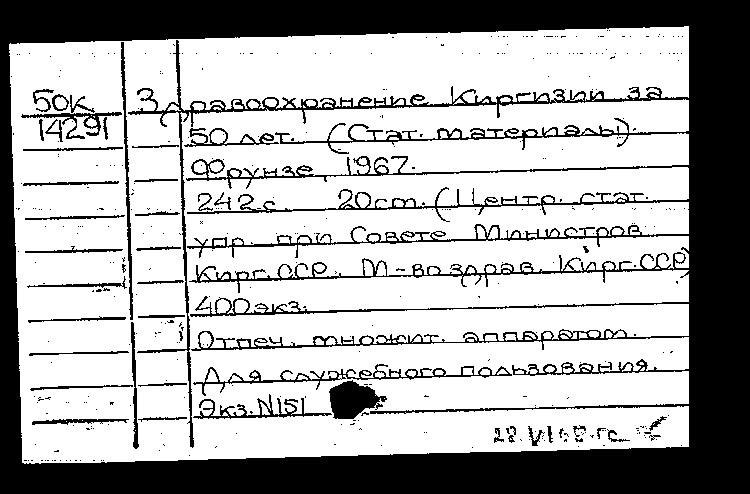 50К Здравоохранение Киргизии за
14291 50 лет. (Стат. материалы).
Фрунзе, 1967.
242 с. 20 ст. (Центр. стат.
упр. при Совете Министров
Кирг. ССР. М-во здрав. Кирг. ССР)
400 экз.
Отпеч. множит. аппаратом.
Для служебного пользования.
Экз. N151